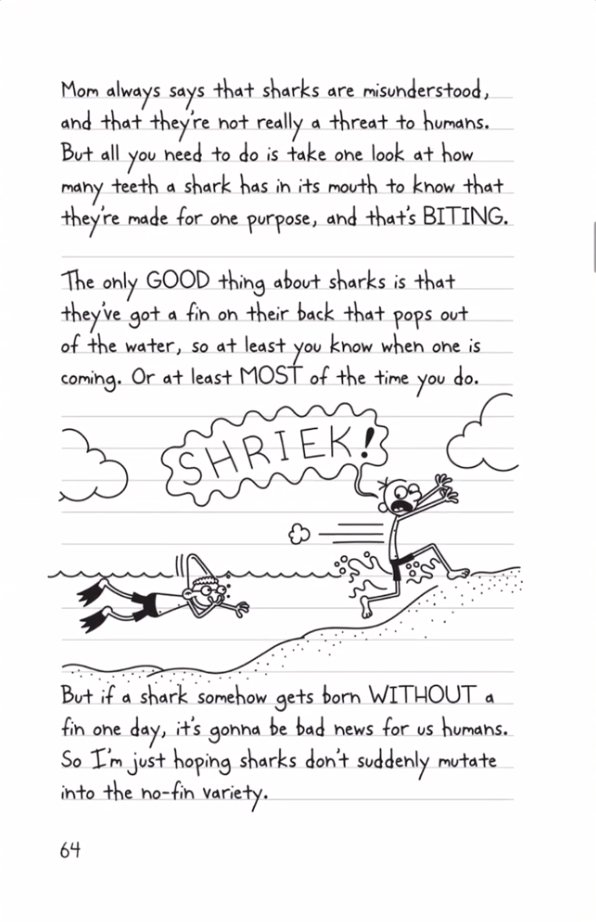 Mom always says that sharks are misunderstood,
and that they're not really a threat to humans.
But all you need to do is take one look at how
many teeth a shark has in its mouth to know that
they're made for one purpose, and that's BITING.
The only GOOD thing about sharks is that
they've got a fin on their back that pops out
of the water, so at least you know when one is
coming. Or at least MOST of the time you do.
SHRIEK!
But if a shark somehow gets born WITHOUT a
fin one day, it's gonna be bad news for us humans.
So I'm just hoping sharks don't suddenly mutate
into the no-fin variety.
64